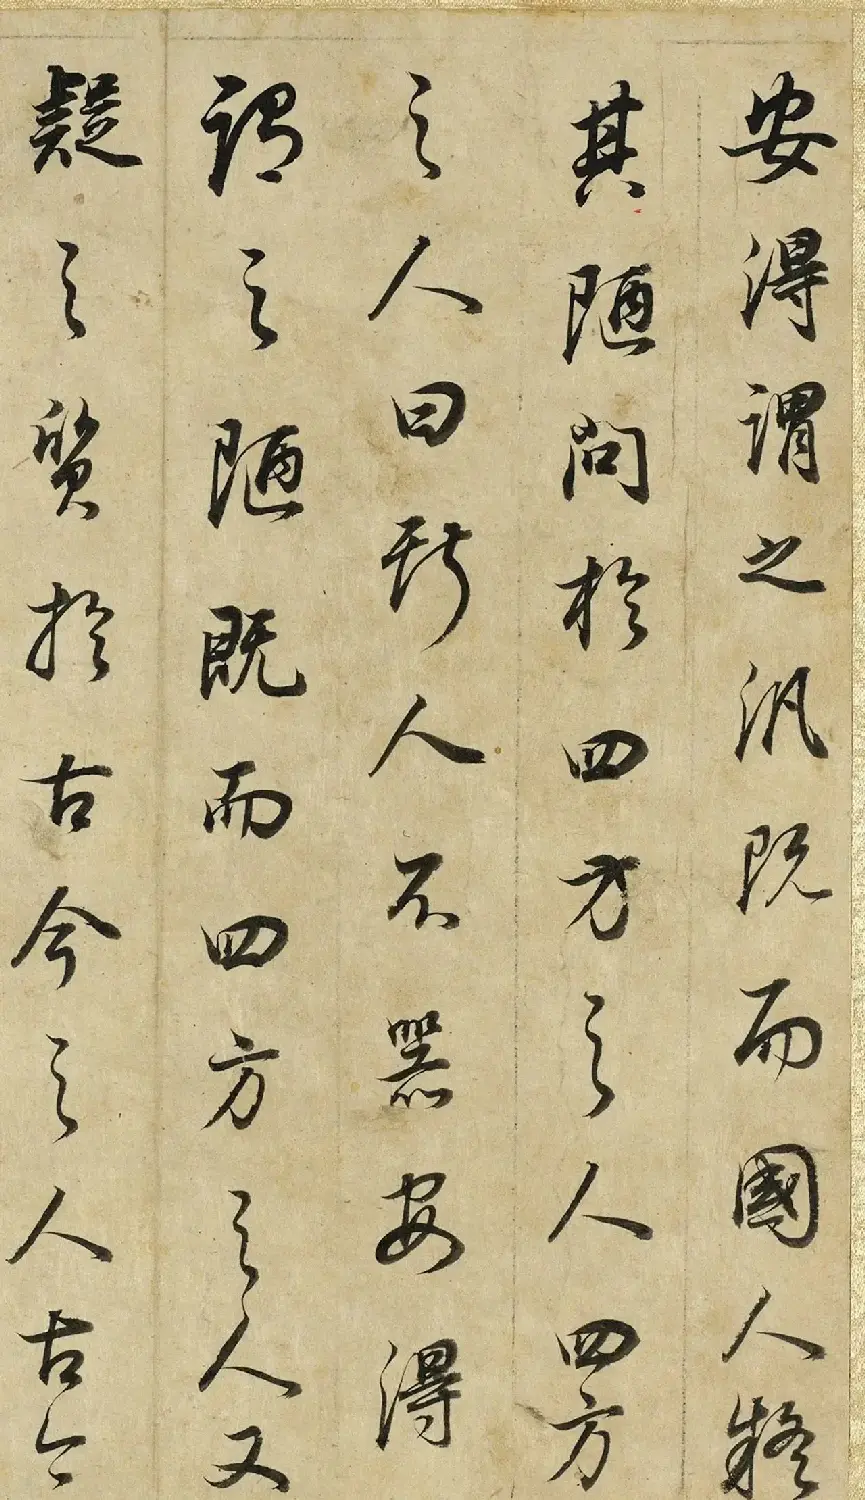 安得謂之汎既而國人疑
其陋問於四方之人四方
之人曰斯人不器安得
謂之陋既而四方之人又
疑之質於古今之人古今